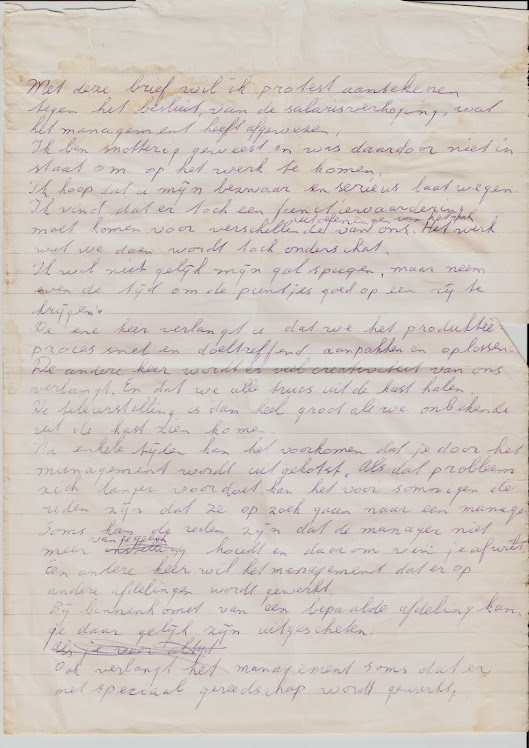 Met deze brief wil ik protest aantekenen
tegen het besluit, van de salarisverhoging, wat
het management heeft afgewezen.
Ik ben snotterig geweest en was daardoor niet in
staat om op het werk te komen.
Ik hoop dat u mijn bezwaar en serieus laat wegen.
Ik vind dat er toch een functiewaardering
moet komen voor verschillende van ons. Het werk
wat we doen wordt toch onderschat.
Ik wil niet gelijk mijn gal spugen, maar neem
even de tijd om de puntjes goed op een rij te
krijgen.
De ene keer verlangt u dat we het produktie-
proces snel en doeltreffend aanpakken en oplossen.
De andere keer wordt er veel creativiteit van ons
verlangt. En dat we alle trucs uit de kast halen.
De teleurstelling is dan heel groot als we onbekende
uit de kast zien komen.
Na enkele tijden kan het voorkomen dat je door het
management wordt uitgekotst. Als dat probleem
zich langer voordoet kan het voor sommigen de
reden zijn dat ze op zoek gaan naar een manager
Soms kan de reden zijn dat de manager niet
meer van je gezicht houdt en daarom van je af wilt.
Een andere keer wil het management dat er op
andere afdelingen wordt gewerkt.
Bij binnenkomst van een bepaalde afdeling kan
je daar gelijk zijn uitgescheten.
Ook verlangt het management soms dat er
met speciaal gereedschap wordt gewerkt,